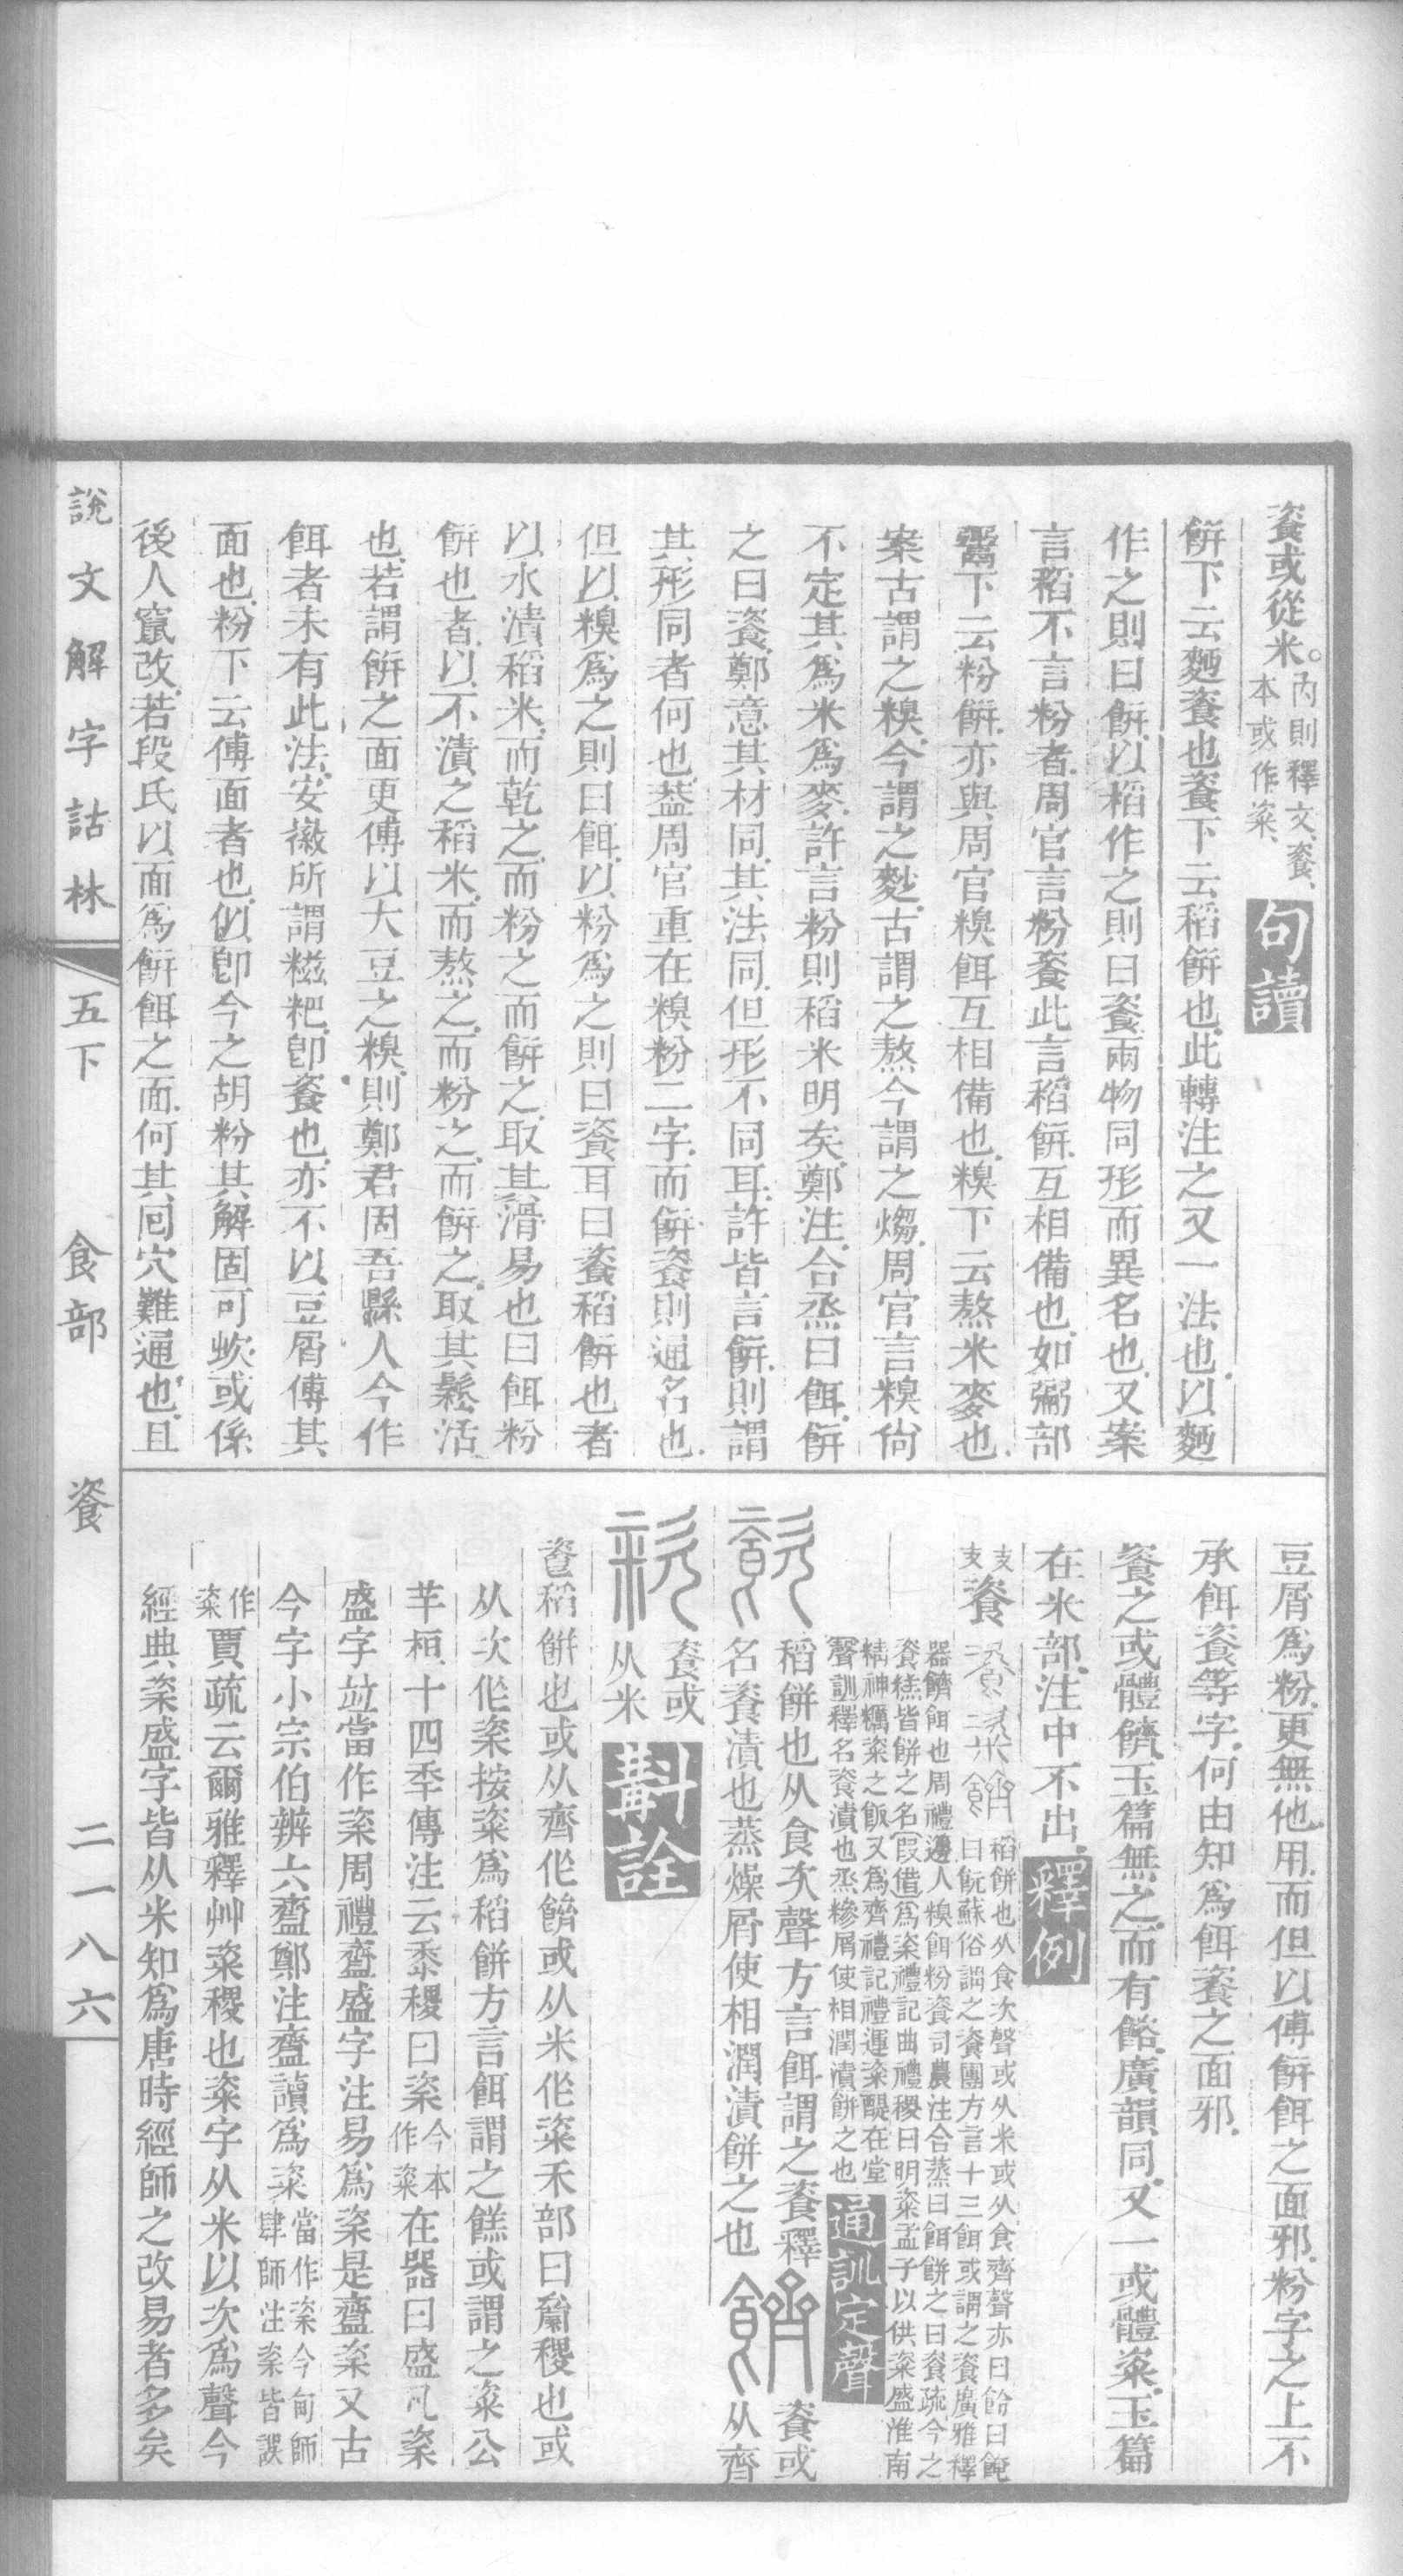 餈或從米。內則釋文、餈、本或作粢、
句讀
餠下云麪餈也餈下云稻餠也此轉注之又一法也以麪
作之則曰餠以稻作之則曰餈兩物同形而異名也又案
言稻不言粉者周官言粉餈此言稻餠互相備也如䰜部
下云粉餠亦與周官糗餌互相備也糗下云熬米麥也
案古謂之糗今謂之麨古謂之熬今謂之㷅周官言糗尙
不定其爲米爲麥許言粉則稻米明矣鄭注合烝曰餌餠
之曰餈鄭意其材同其法同但形不同耳許皆言餠則謂
其形同者何也葢周官重在糗粉二字而餠餈則通名也
但以糗爲之則曰餌以粉爲之則曰餈耳曰餈稻餠也者
以水漬稻米而乾之而粉之而餠之取其滑易也曰餌粉
餠也者以不漬之稻米而熬之而粉之而餠之取其鬆活
也若謂餠之面更傅以大豆之糗則鄭君固吾縣人今作
餌者未有此法安徽所謂糍粑卽餈也亦不以豆屑傅其
面也粉下云傅面者也似卽今之胡粉其解固可蚩或係
後人竄改若段氏以面爲餠餌之面何其囘穴難通也且
豆屑爲粉更無他用而但以傅餠餌之面邪粉字之上不
承餌餈等字何由知爲餌餈之面邪
餈之或體䭣玉篇無之而有饎廣韻同又一或體粢玉篇
在米部注中不出
釋例
餈
稻餅也从食次聲或从米或从食齊聲亦曰
曰䬧蘇俗謂之餈團方言十三餌或謂之餈廣雅釋
器䭣餌也周禮籩人糗餌粉餈司農注合蒸曰餌餅之曰餈疏今之
餈糕皆餅之名叚借爲粢禮記曲禮稷曰明粢孟子以供粢盛淮南
精神糲粢之飯又爲齊禮記禮運粢醍在堂
聲訓釋名餈漬也烝糝屑使相潤漬餅之也
通訓定聲
稻餅也从食次聲方言餌謂之餈釋
名餈漬也蒸燥屑使相潤漬餅之也
餈或从齊
餈或从米
斠詮
餈稻餅也或从齊作䭣或从米作粢禾部曰齋稷也或
从次作秶按粢爲稻餅方言餌謂之餻或謂之粢公
羊桓十四年傳注云黍稷曰秶今本作粢在器曰盛凡秶
盛字竝當作秶周禮齍盛字注易爲秶是齍秶又古
今字小宗伯辨六齍鄭注齍讀爲粢當作秶今甸師肆師注粢皆誤
作粢賈疏云爾雅釋艸粢稷也粢字从米以次爲聲今
經典粢盛字皆从米知爲唐時經師之改易者多矣
說文解字詁林
五下
食部
餈
二一八六